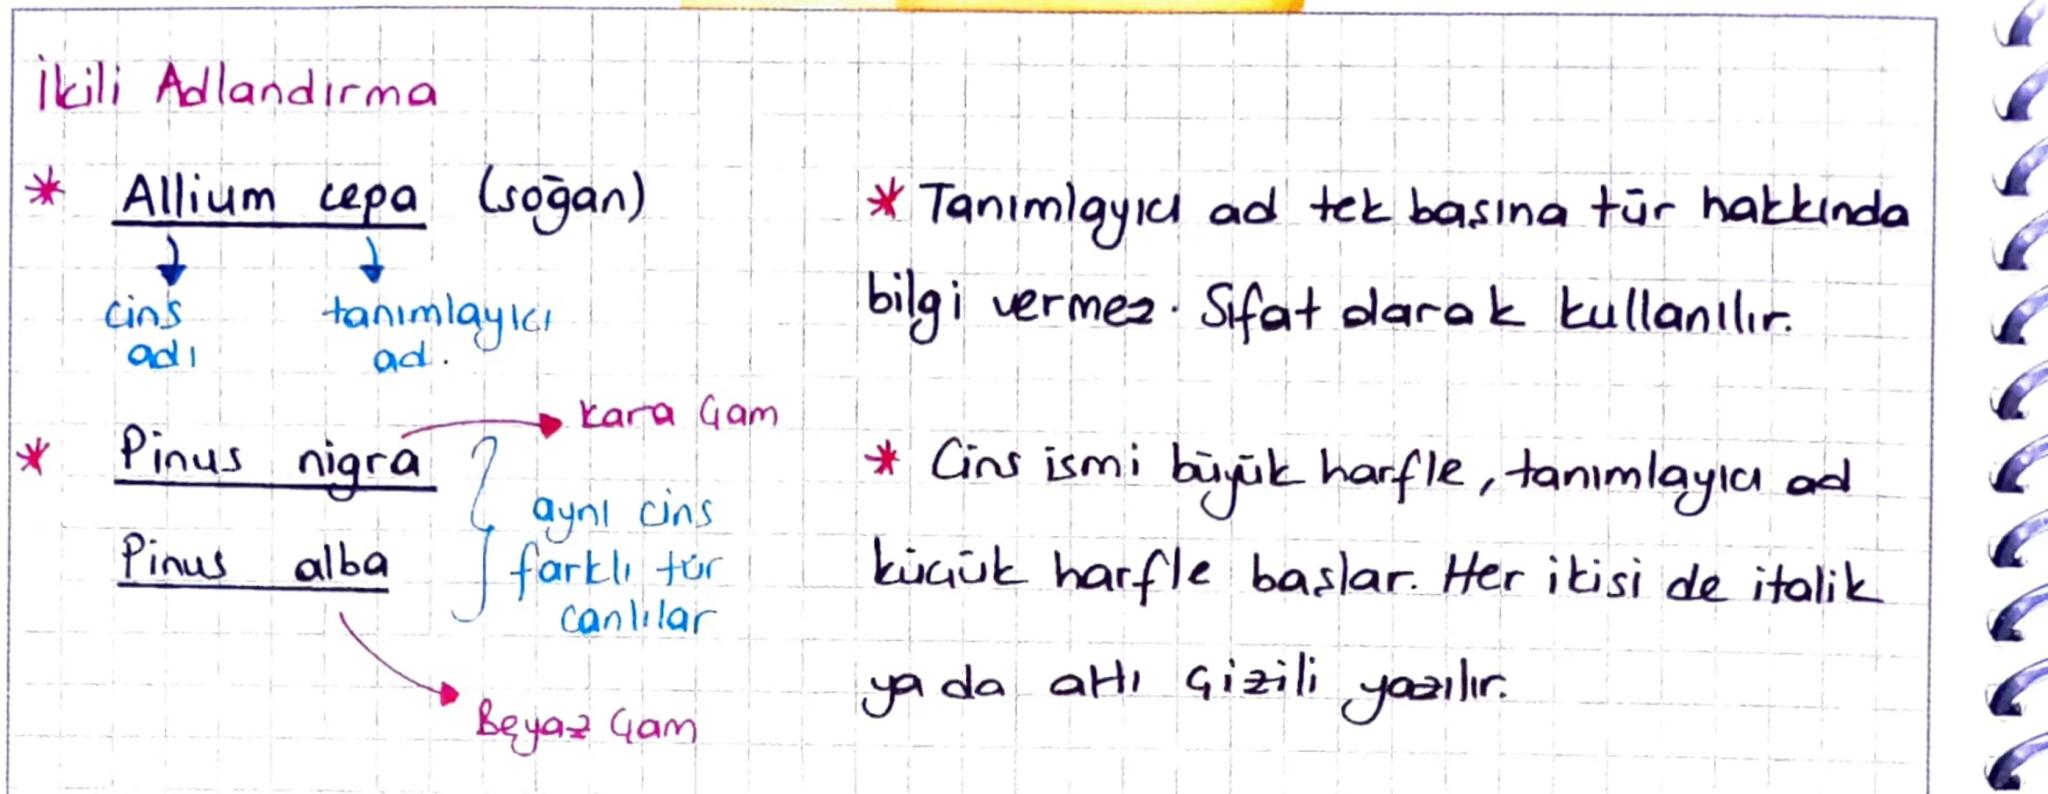 İkili Adlandırma
* Allium cepa (soğan)
cins adı
tanımlayıcı ad.
* Pinus nigra
Kara Çam
Pinus alba
aynı cins
farklı tür
canlılar
Beyaz Çam
* Tanımlayıcı ad tek başına tür hakkında
bilgi vermez. Sıfat olarak kullanılır.
* Cins ismi büyük harfle, tanımlayıcı ad
küçük harfle başlar. Her ikisi de italik
ya da altı çizili yazılır.